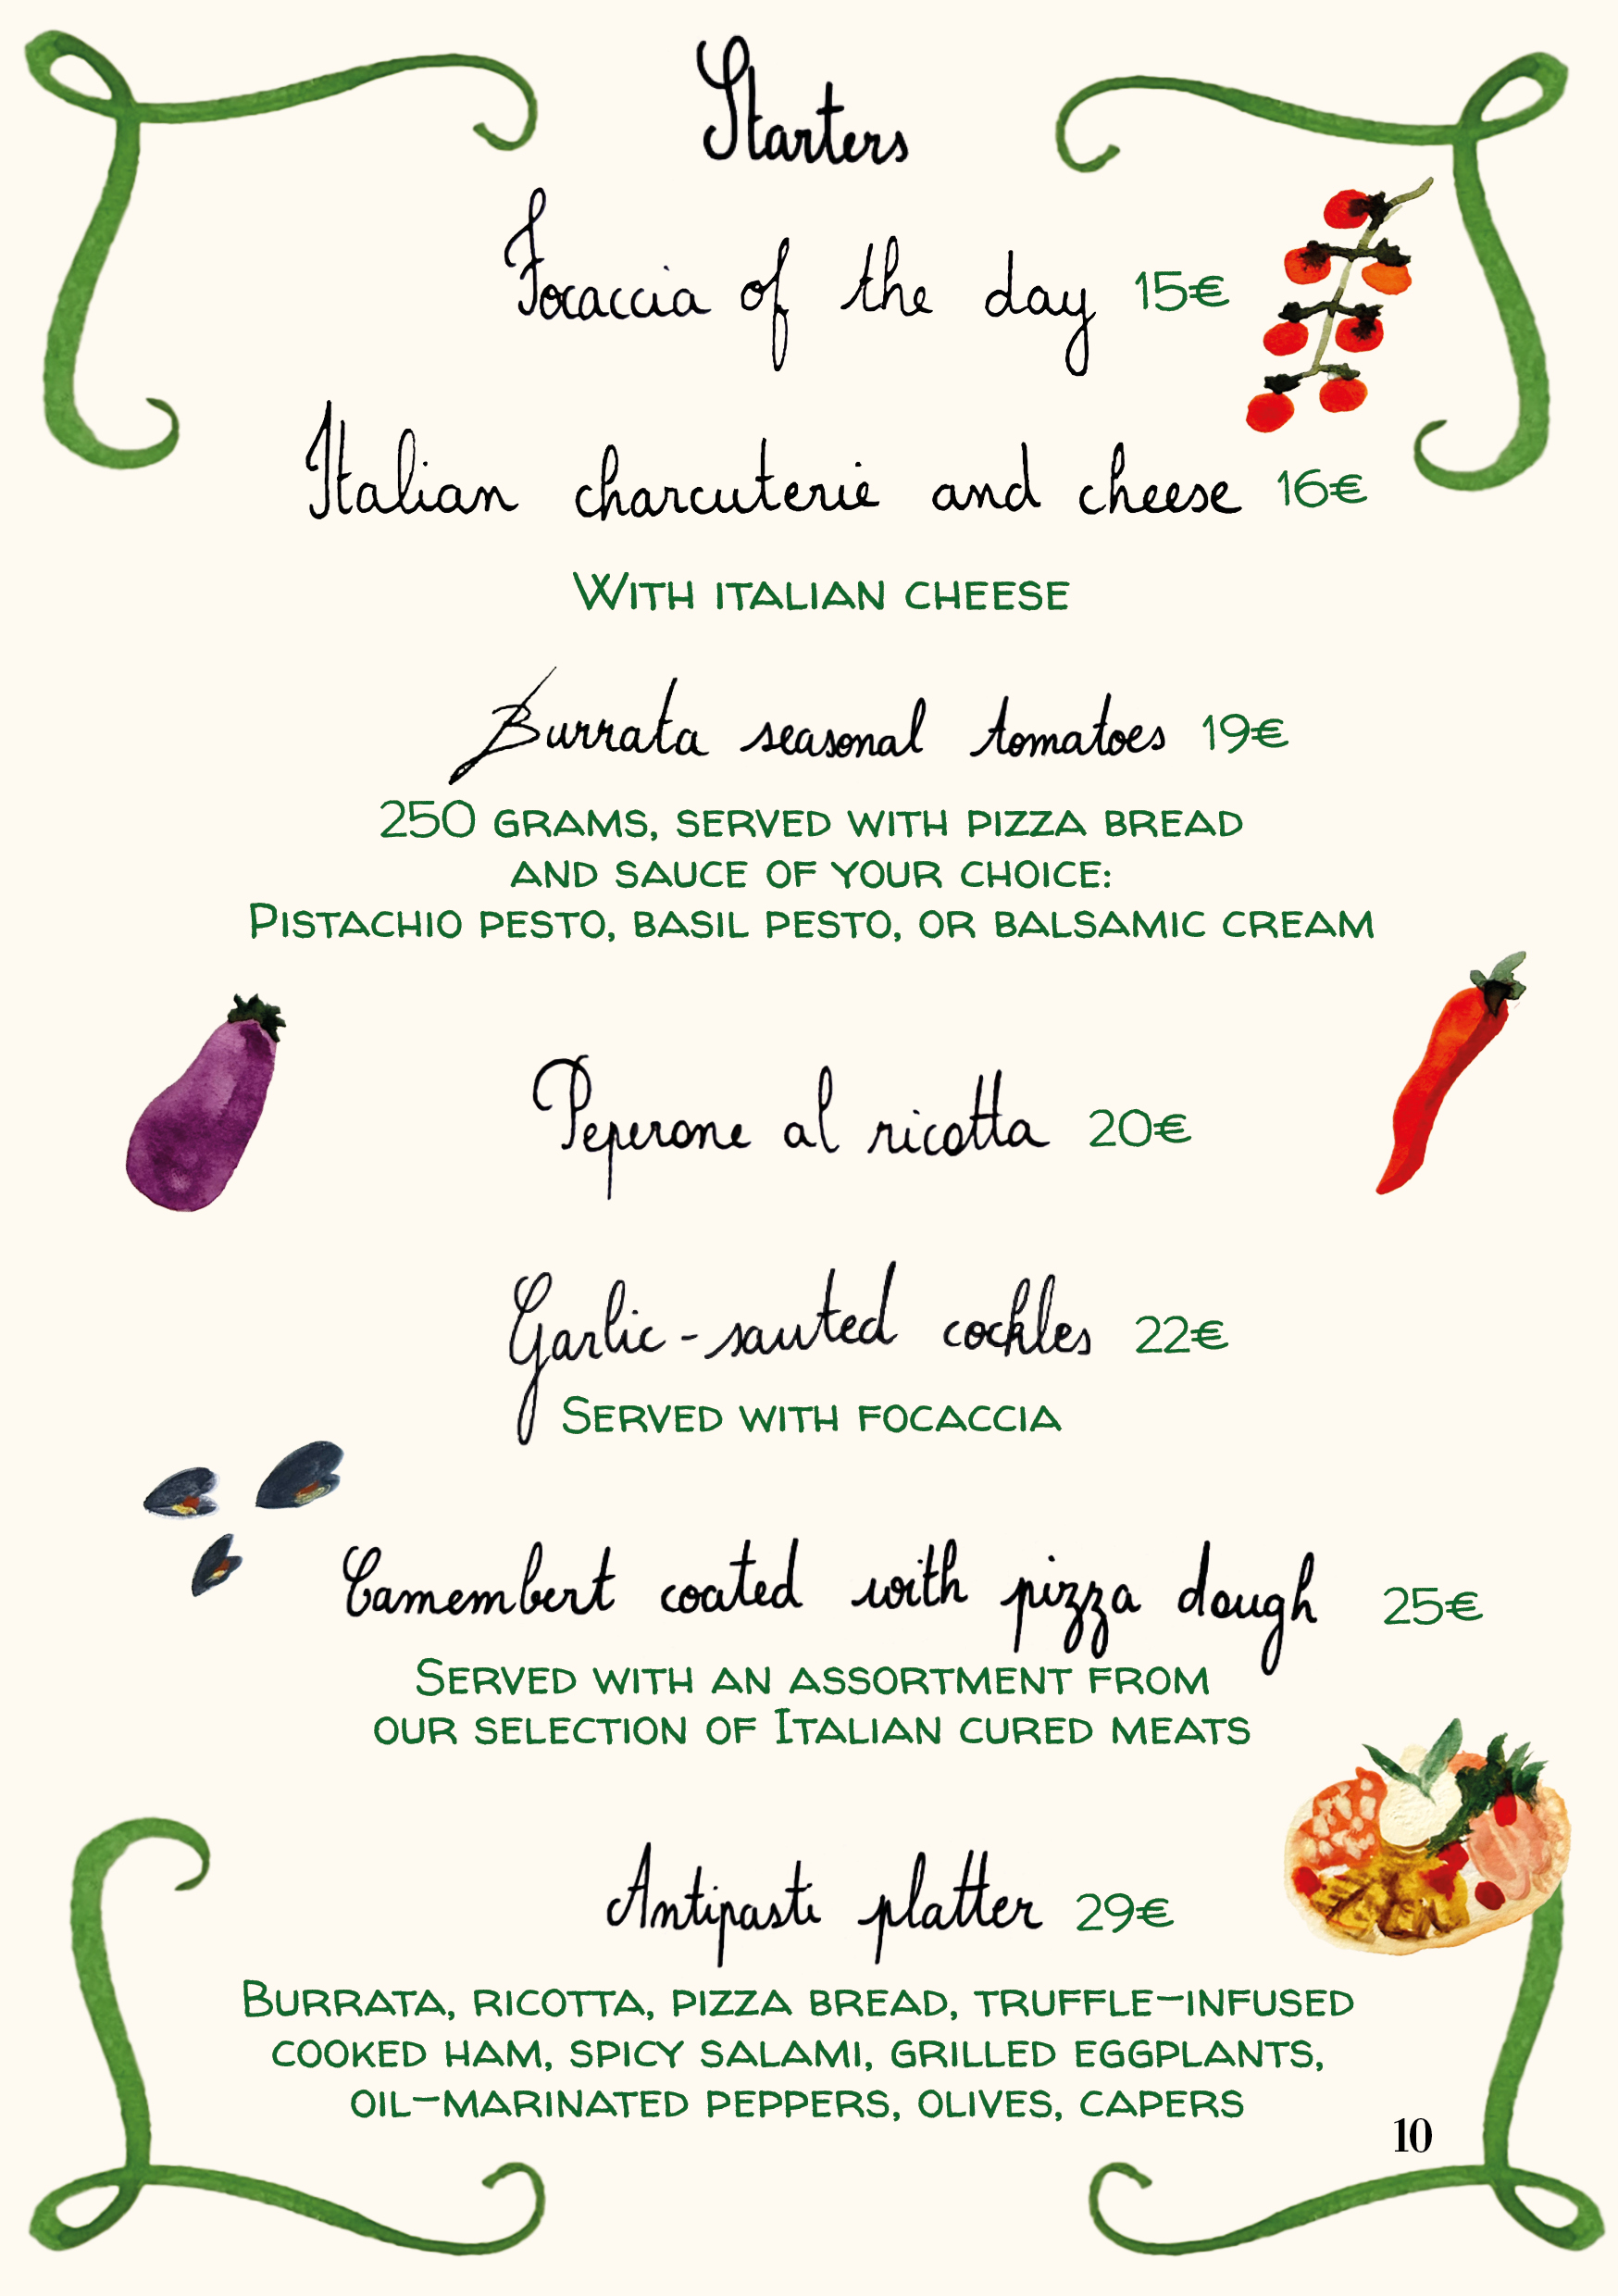 Starters
Focaccia of the day 15€
Italian charcuterie and cheese 16€
With italian cheese
Burrata seasonal tomatoes 19€
250 grams, served with pizza bread
and sauce of your choice:
Pistachio pesto, basil pesto, or balsamic cream
Peperone al ricotta 20€
Garlic-sauted cockles 22€
Served with focaccia
Camembert coated with pizza dough 25€
Served with an assortment from
our selection of Italian cured meats
Antipasti platter 29€
Burrata, ricotta, pizza bread, truffle-infused
cooked ham, spicy salami, grilled eggplants,
oil-marinated peppers, olives, capers
10